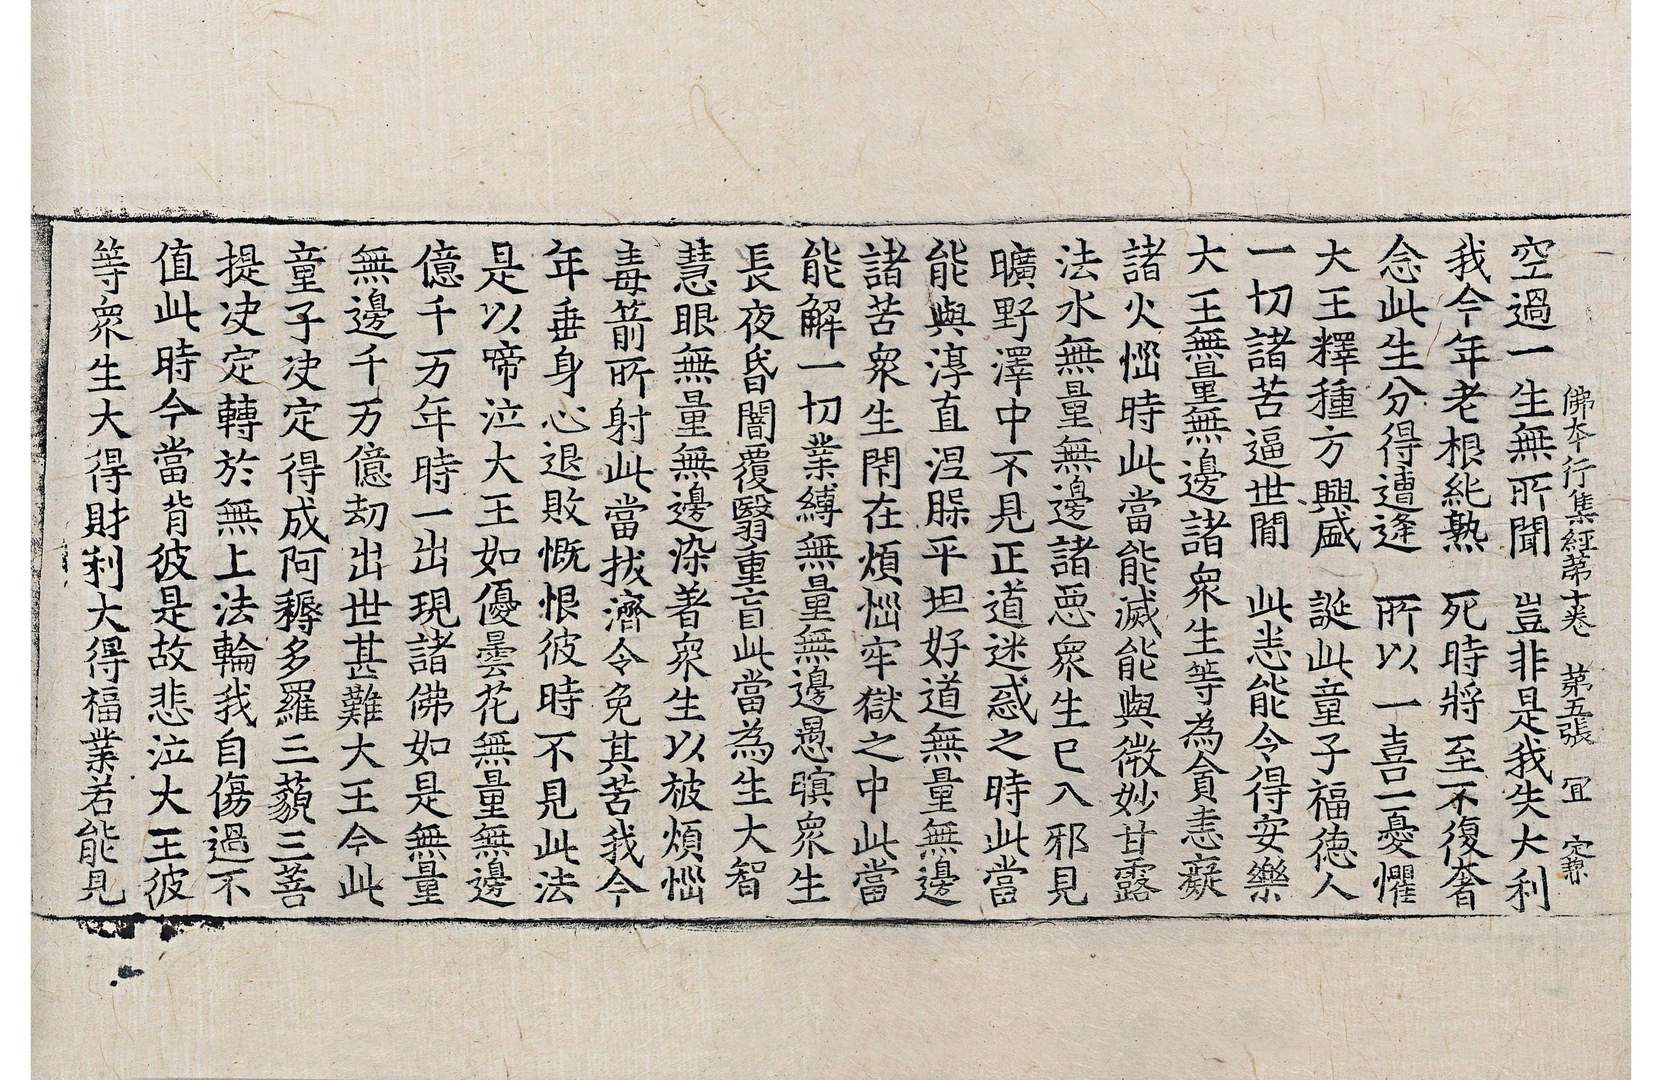 佛本行集經第十卷　第五張　冝　定
空過一生無所聞　豈非是我失大利
我今年老根純熟　死時將至不復奢
念此生分得遭逢　所以一喜一憂懼
大王釋種方興盛　誕此童子福德人
一切諸苦逼世間　此悉能令得安樂
大王無量無邊諸衆生等為貪恚癡
諸火惱時此當能滅能與微妙甘露
法水無量無邊諸惡衆生已入邪見
曠野澤中不見正道迷惑之時此當
能與淳直涅槃平坦好道無量無邊
諸苦衆生閇在煩惱牢獄之中此當
能解一切業縛無量無邊愚瞑衆生
長夜昏闇覆翳重盲此當為生大智
慧眼無量無邊染著衆生以被煩惱
毒箭所射此當拔濟令免其苦我今
年垂身心退敗慨恨彼時不見此法
是以啼泣大王如優曇花無量無邊
億千万年時一出現諸佛如是無量
無邊千万億劫出世甚難大王今此
童子决定得成阿耨多羅三藐三菩
提决定轉於無上法輪我自傷過不
值此時今當背彼是故悲泣大王彼
等衆生大得財利大得福業若能見